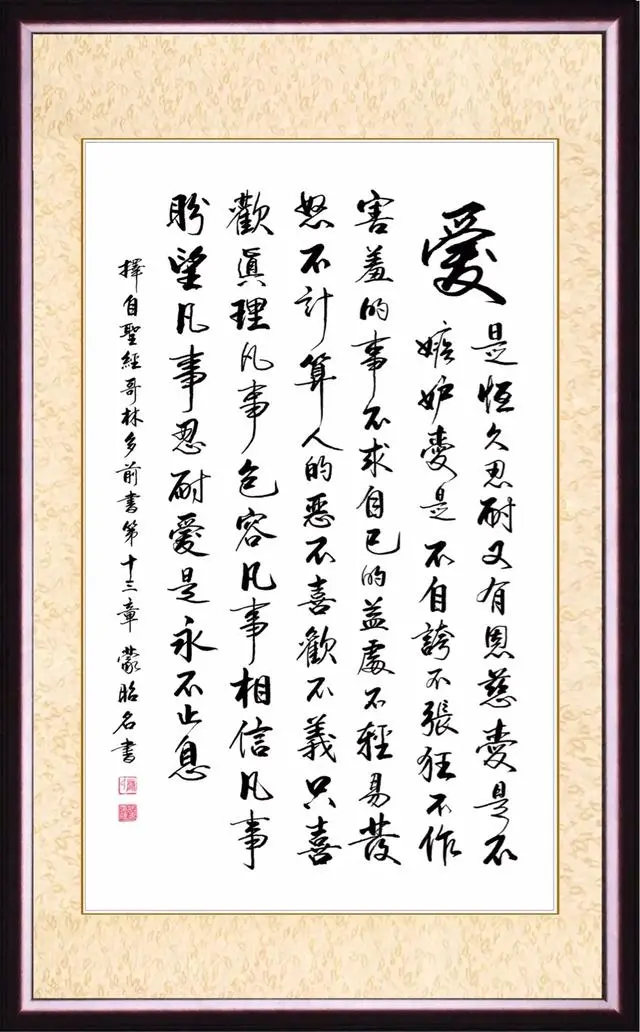 愛
是恆久忍耐又有恩慈愛是不
嫉妒愛是不自誇不張狂不作
害羞的事不求自己的益處不輕易發
怒不計算人的惡不喜歡不義只喜
歡眞理凡事包容凡事相信凡事
盼望凡事忍耐愛是永不止息
擇自聖經哥林多前書第十三章 蒙昭名書